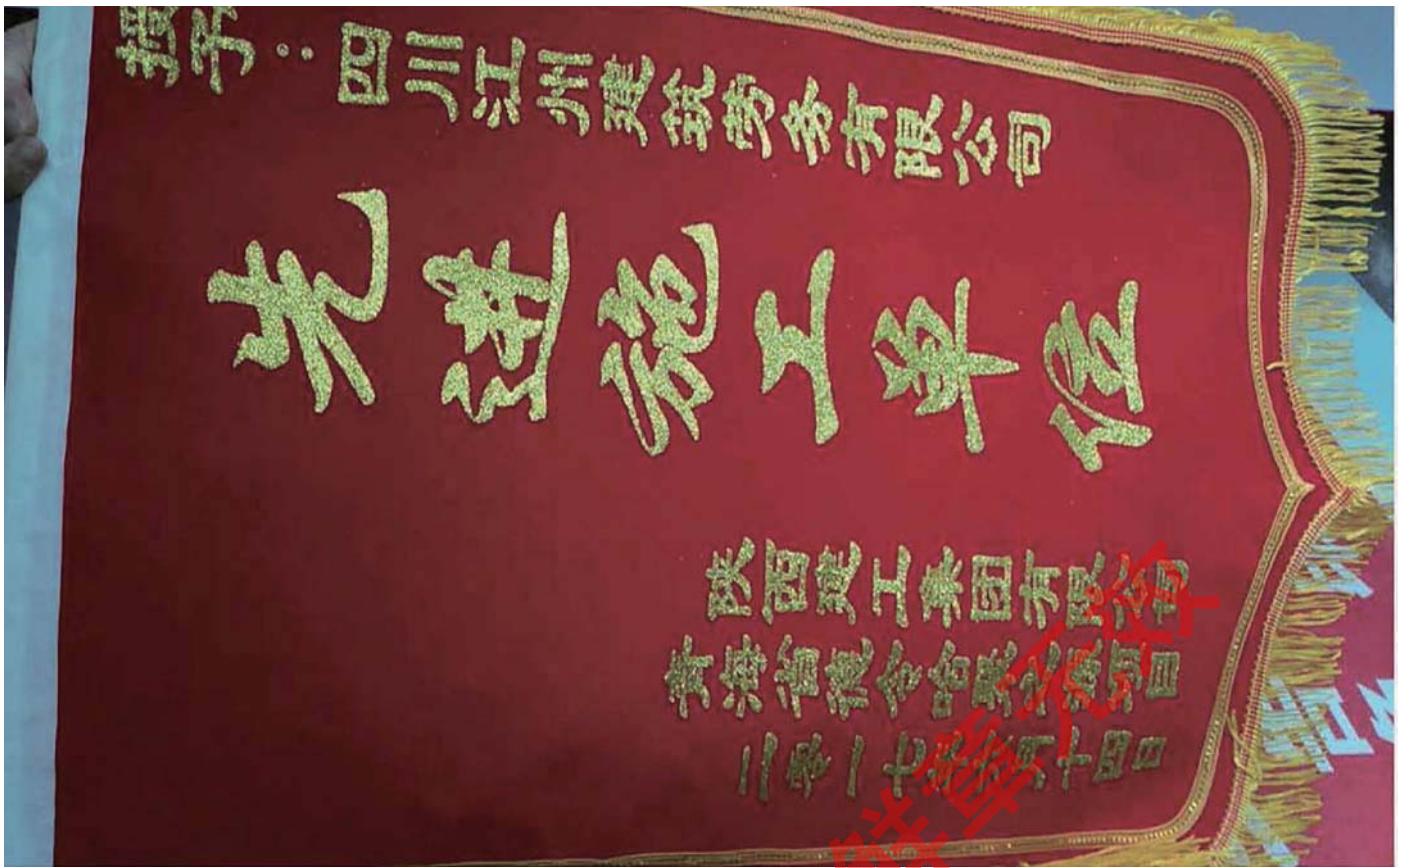 授予：四川江州建筑劳务有限公司
先进施工单位
陕西建工集团有限公司
青海省德令哈
二零一七年 月十四日
鲜章无效